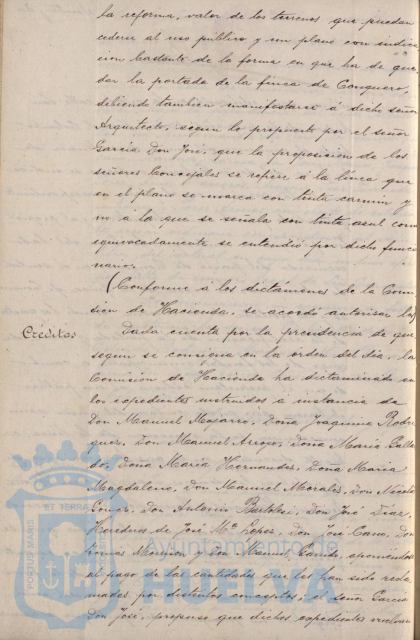 la reforma, valor de los terrenos que puedan
cederse al uso publico y un plano con indica
cion bastante de la forma en que ha de que
dar la portada de la finca de Conquero,
debiendo tambien manifestarse á dicho señor
Arquitecto, segun lo propuesto por el señor
García Don José, que la proposicion de los
señores Concejales se refiere á la línea que
en el plano se marca con tinta carmin y
no á la que se señala con tinta azul como
equivocadamente se entendió por dicho funcio
nario.
(Conforme á los dictámenes de la Comi
sion de Hacienda, se acordó autorizar las)
Créditos
Dada cuenta por la presidencia de que,
segun se consigna en la órden del dia, la
Comision de Hacienda ha dictaminado en
los expedientes instruidos á instancia de
Don Manuel Doña Joaquina Rodri
guez, Don Manuel Arroyo, Doña María
Doña María Hernandez, Doña María
Magdaleno, Don Manuel Morales, Don
Don Antonio Don José Diaz,
Herederos de José Mª Lopez, Don José Cano, Don
Tomas y Don Manuel
el pago de las cantidades que les han sido recla
madas por distintos conceptos; el señor García
Don José, propuso que dichos expedientes vuelvan
PORTUS MARIS
ET TERRÆ
Ayuntamiento de
HUELVA